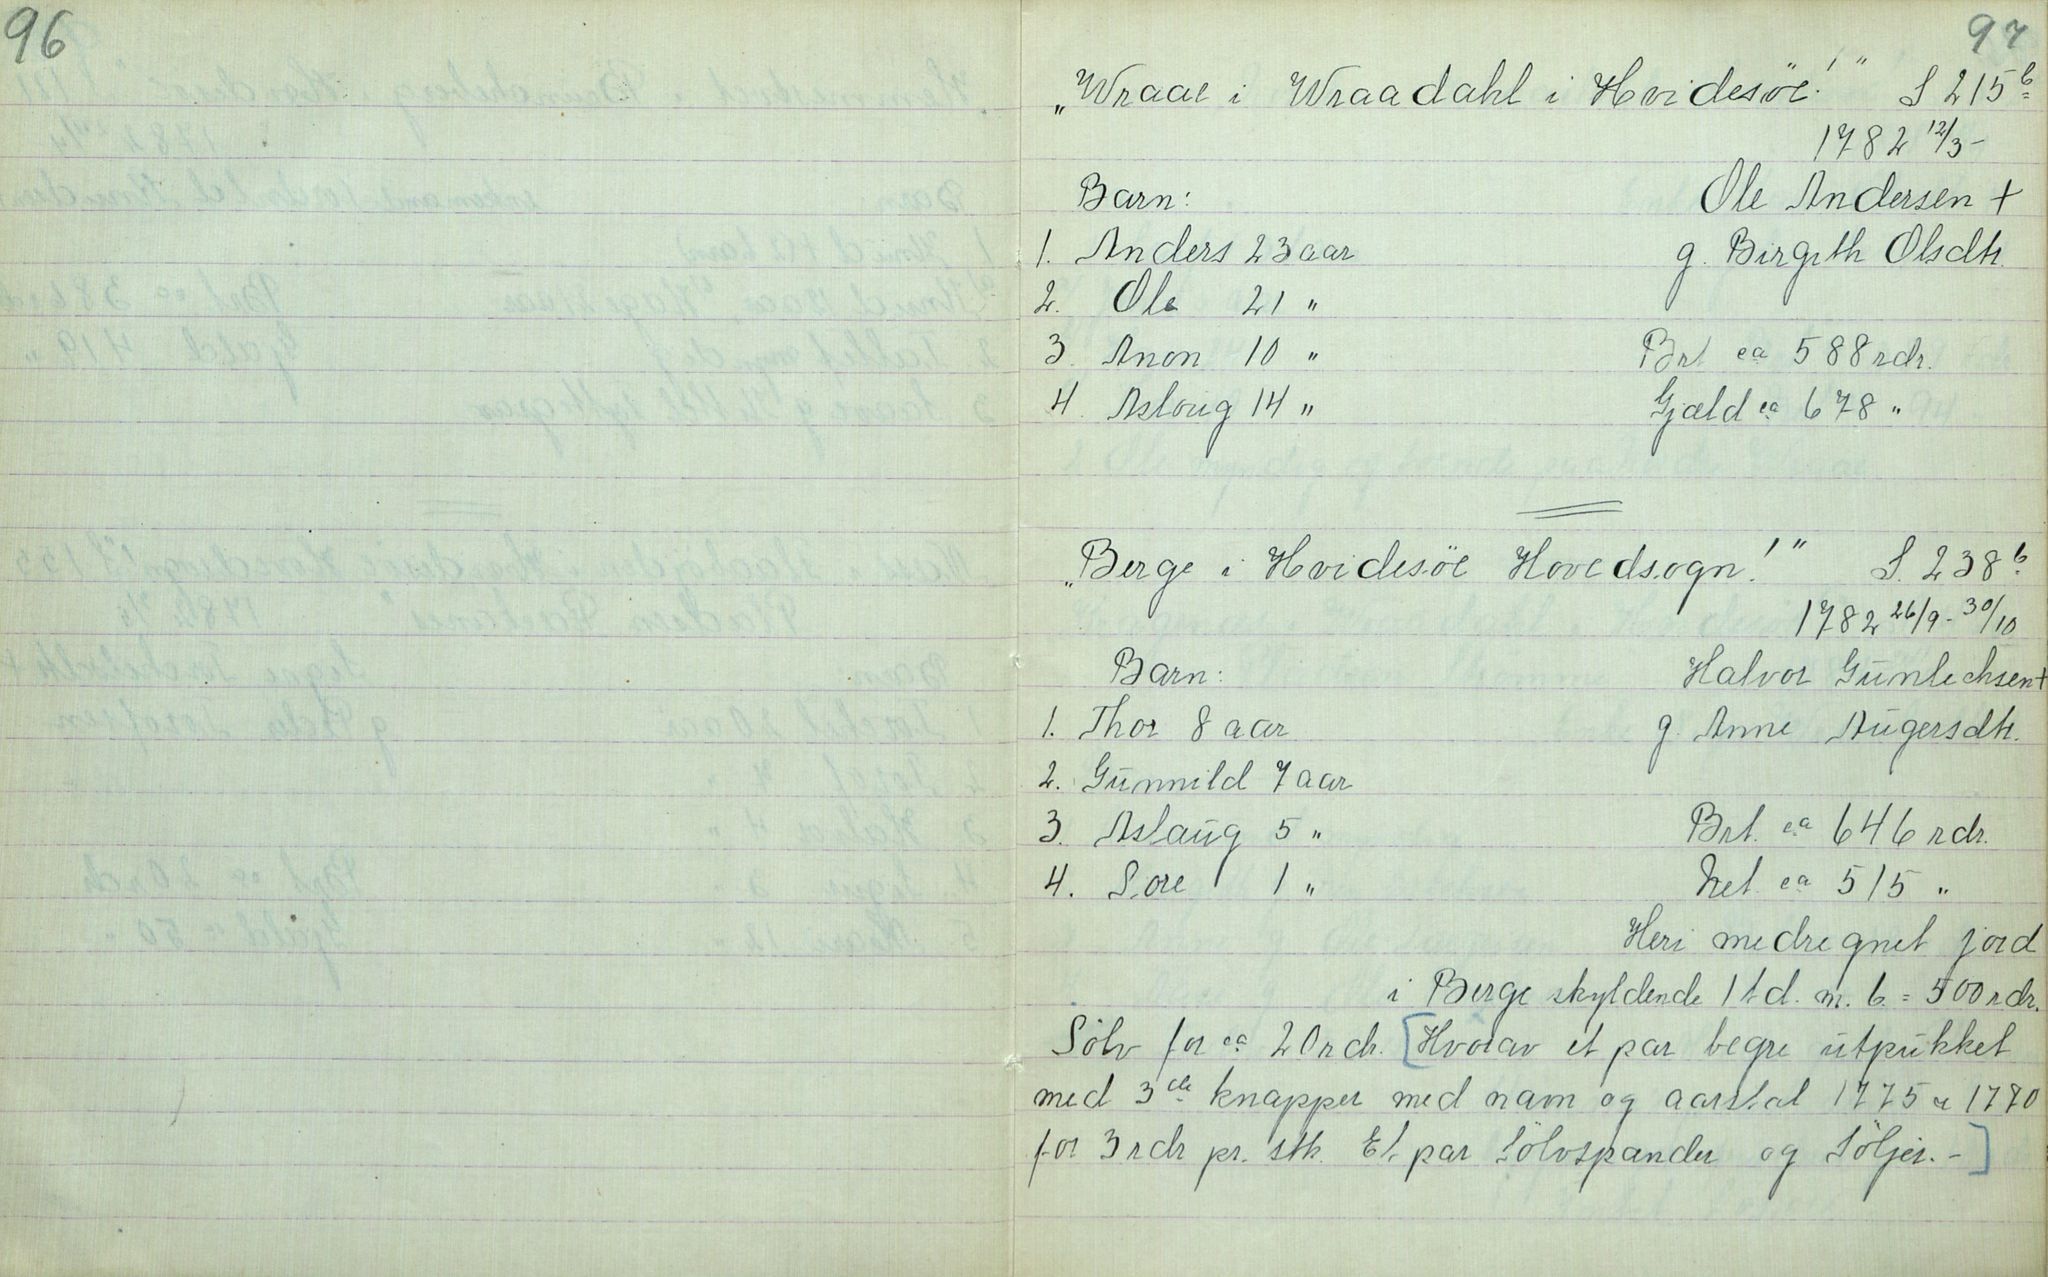 96
97
„Wraae i Wraadahl i Hvidesöe!" S 215b
1782 12/3 -
Barn: Ole Andersen +
1. Anders 23 aar g. Birgith Olsdtr.
2. Ole 21 "
3. Anon 10 " Brt. ca 588 rdr.
4. Asloug 14 " Gjæld ca 678 "
„Berge i Hvidesöe Hovedsogn!" S. 238b
1782 26/9 - 30/10
Barn: Halvor Gunlechsen +
1. Thor 8 aar g. Anne Augersdtr.
2. Gunnild 7 aar
3. Aslaug 5 " Brt. ca 646 rdr.
4. Sore 1 " Net. ca 515 "
Heri medregnet jord
i Berge skyldende 1 td. m. b. = 500 rdr.
Sölv for ca 20 rdr. [Hvorav et par begre utpukket
med 3de knapper med navn og aarstal 1775 1770
for 3 rdr pr. stk. Et par Sölvspander og Söljer. -]